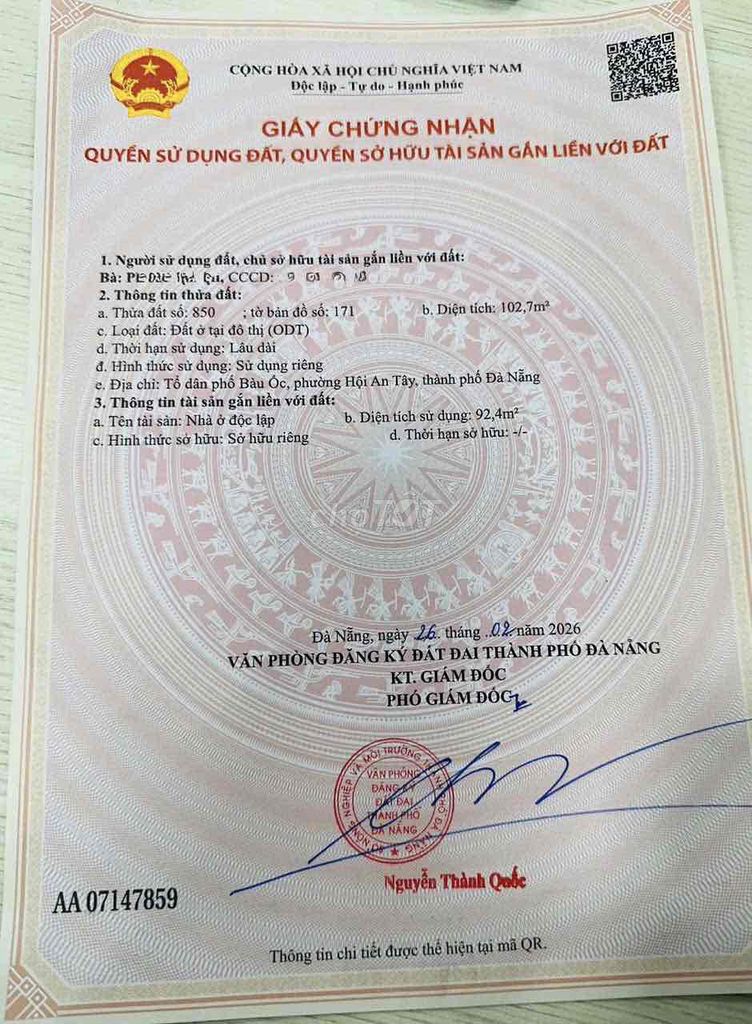 CỘNG HÒA XÃ HỘI CHỦ NGHĨA VIỆT NAM
Độc lập - Tự do - Hạnh phúc
GIẤY CHỨNG NHẬN
QUYỀN SỬ DỤNG ĐẤT, QUYỀN SỞ HỮU TÀI SẢN GẮN LIỀN VỚI ĐẤT
1. Người sử dụng đất, chủ sở hữu tài sản gắn liền với đất:
Bà: CCCD:
2. Thông tin thửa đất:
a. Thửa đất số: 850 ; tờ bản đồ số: 171 b. Diện tích: 102,7m²
c. Loại đất: Đất ở tại đô thị (ODT)
d. Thời hạn sử dụng: Lâu dài
đ. Hình thức sử dụng: Sử dụng riêng
e. Địa chỉ: Tổ dân phố Bàu Ốc, phường Hội An Tây, thành phố Đà Nẵng
3. Thông tin tài sản gắn liền với đất:
a. Tên tài sản: Nhà ở độc lập b. Diện tích sử dụng: 92,4m²
c. Hình thức sở hữu: Sở hữu riêng d. Thời hạn sở hữu: -/-
choTỐT
Đà Nẵng, ngày 26 tháng 02 năm 2026
VĂN PHÒNG ĐĂNG KÝ ĐẤT ĐAI THÀNH PHỐ ĐÀ NẴNG
KT. GIÁM ĐỐC
PHÓ GIÁM ĐỐC
SỞ NÔNG NGHIỆP VÀ MÔI TRƯỜNG THÀNH PHỐ ĐÀ NẴNG
VĂN PHÒNG
ĐĂNG KÝ
ĐẤT ĐAI
THÀNH PHỐ
ĐÀ NẴNG
Nguyễn Thành Quốc
AA 07147859
Thông tin chi tiết được thể hiện tại mã QR.